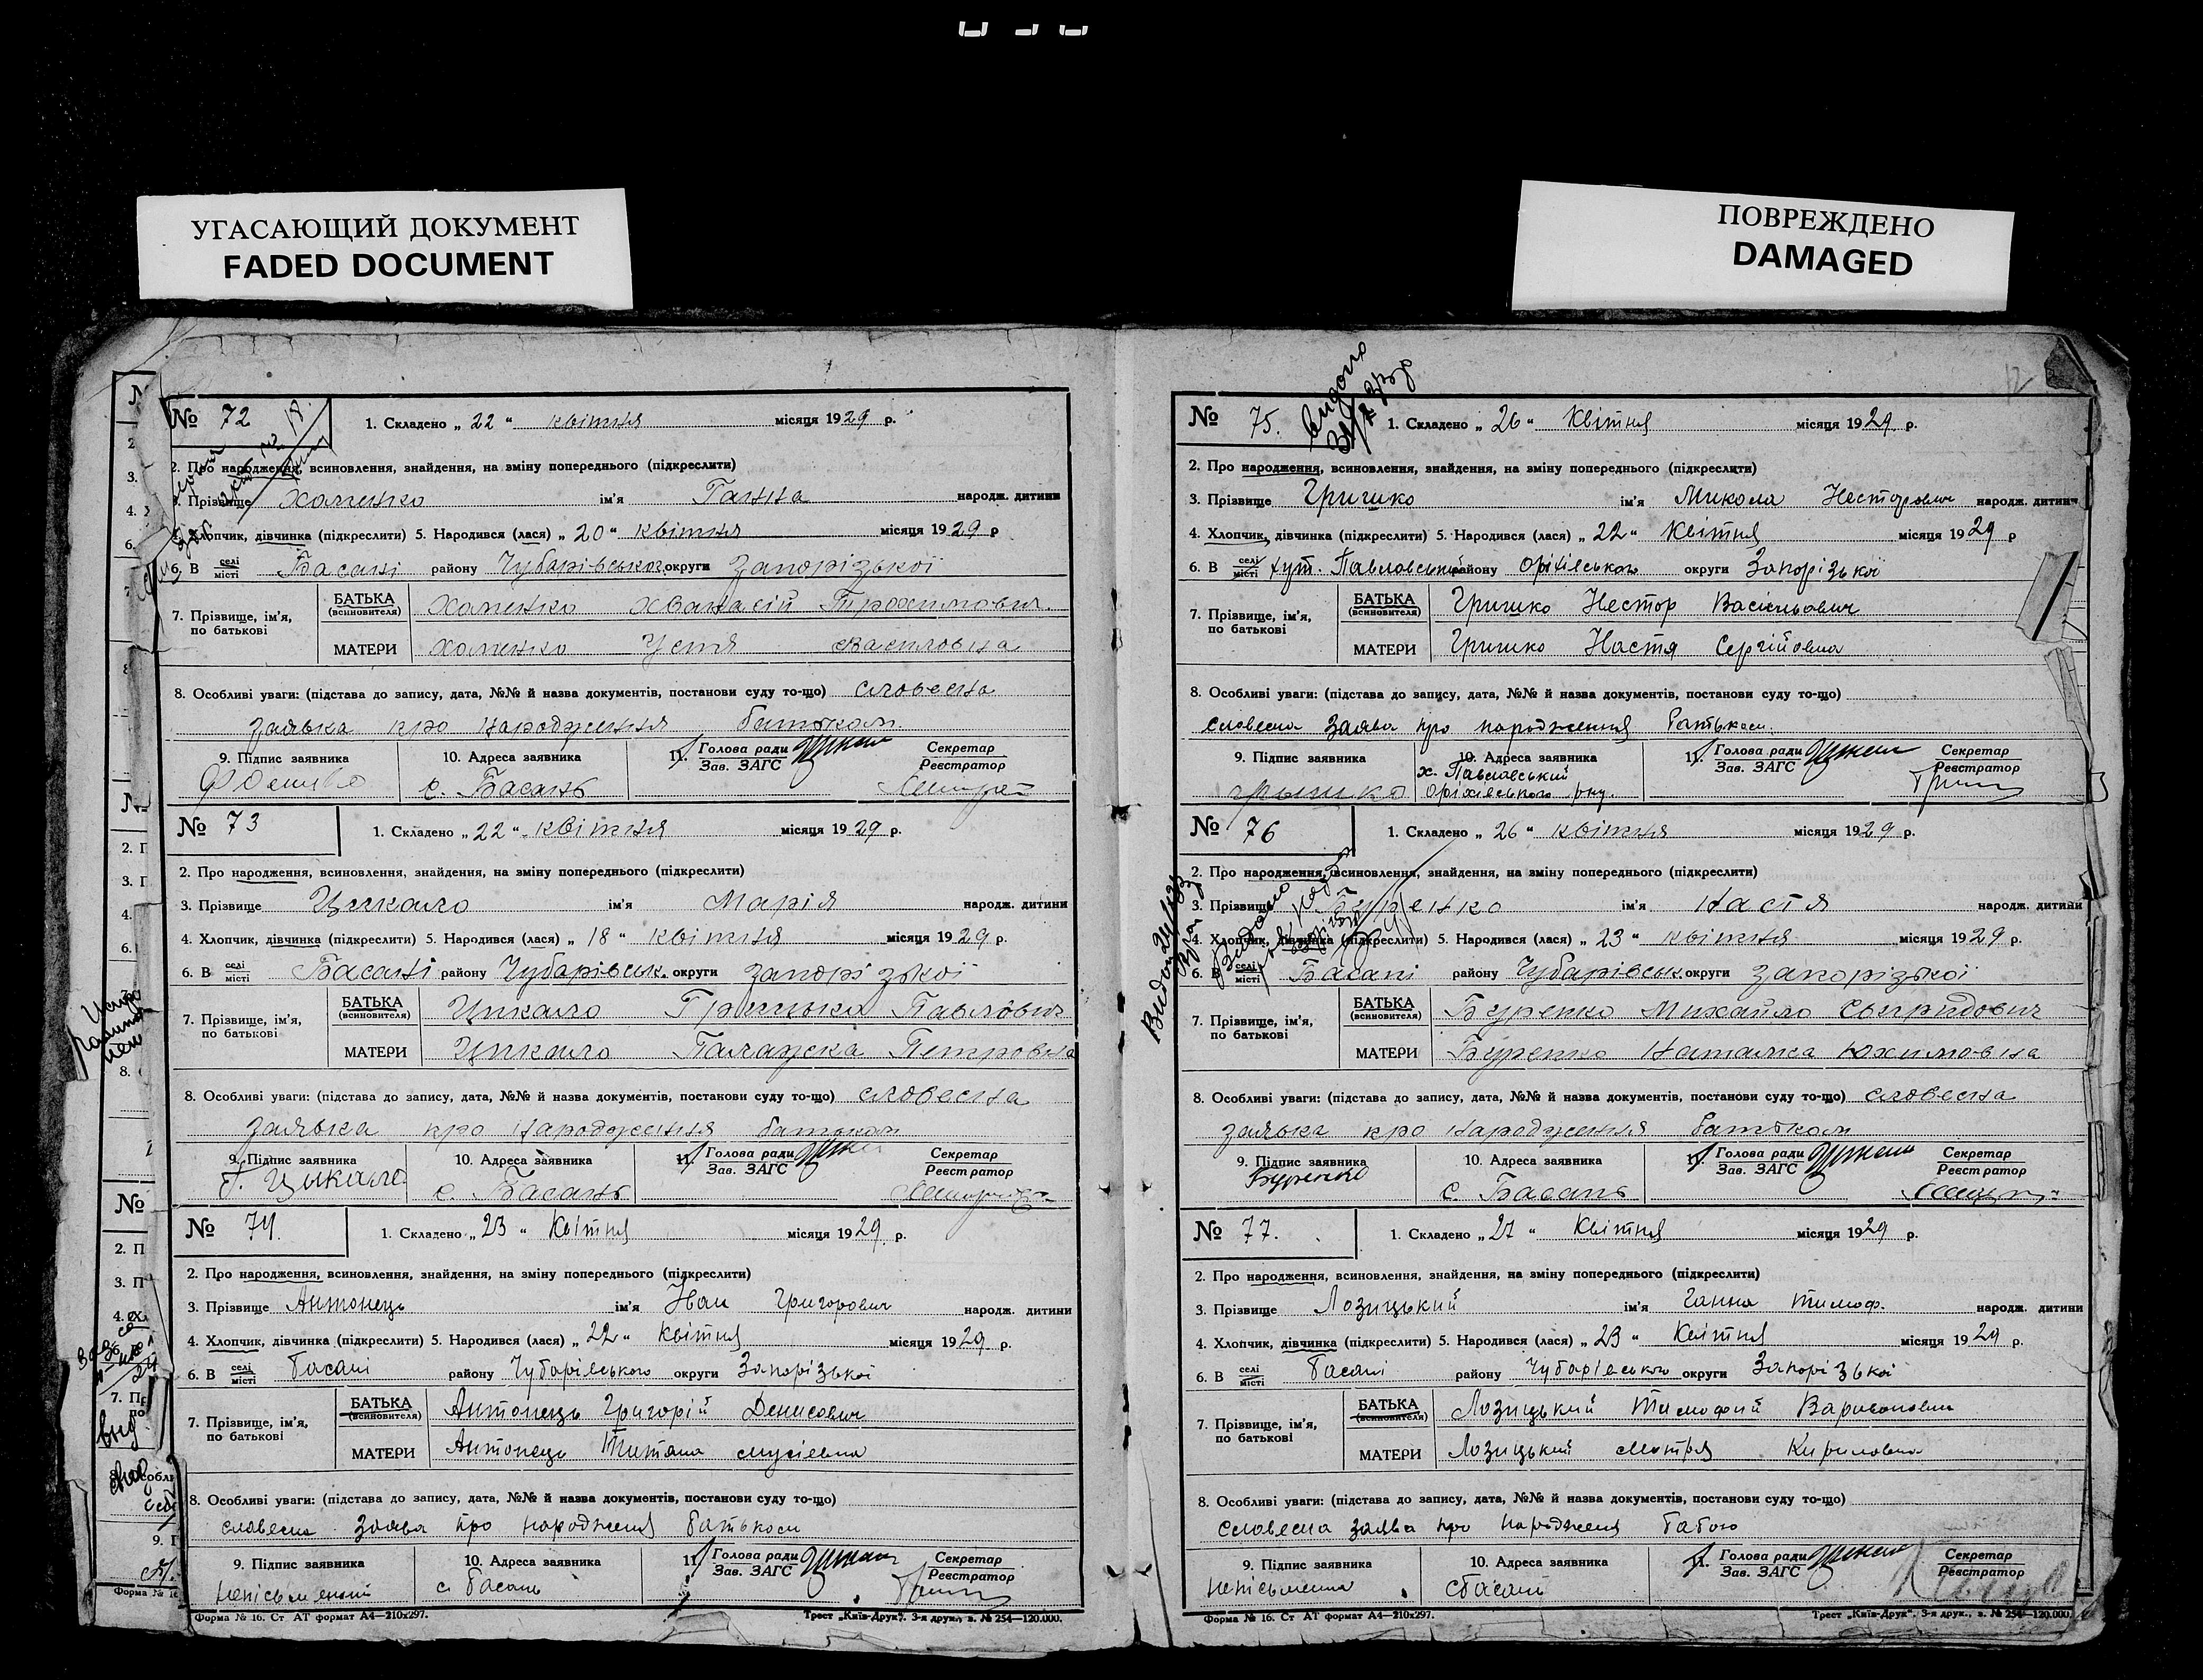 УГАСАЮЩИЙ ДОКУМЕНТ
FADED DOCUMENT
ПОВРЕЖДЕНО
DAMAGED
№ 72
1. Складено „ 22 “ квітня місяця 1929 р.
2. Про народження, всиновлення, знайдення, на зміну попереднього (підкреслити)
3. Прізвище Хоменко ім'я Ганна народж. дитини
4. Хлопчик, дівчинка (підкреслити) 5. Народився (лася) „ 20 “ квітня місяця 1929 р
6. В селі місті Басані району Чубарівського округи Запорізької
7. Прізвище, ім'я, по батькові
БАТЬКА (всиновителя) Хоменко Хванасій Трохимович
МАТЕРИ Хоменко Устя Василовна
8. Особливі уваги: (підстава до запису, дата, №№ й назва документів, постанови суду то-що) словесна
заявка про народження батьком
9. Підпис заявника
10. Адреса заявника с. Басань
11. Голова ради Зав. ЗАГС
Секретар Реєстратор
№ 73
1. Складено „ 22 “ квітня місяця 1929 р.
2. Про народження, всиновлення, знайдення, на зміну попереднього (підкреслити)
3. Прізвище Цикало ім'я Марія народж. дитини
4. Хлопчик, дівчинка (підкреслити) 5. Народився (лася) „ 18 “ квітня місяця 1929 р.
6. В селі місті Басані району Чубарівськ. округи Запорізької
7. Прізвище, ім'я, по батькові
БАТЬКА (всиновителя) Цикало Грицько Павлович
МАТЕРИ Цикало Палажка Петровна
8. Особливі уваги: (підстава до запису, дата, №№ й назва документів, постанови суду то-що) словесна
заявка про народження батьком
9. Підпис заявника Г. Цыкало
10. Адреса заявника с. Басань
11. Голова ради Зав. ЗАГС
Секретар Реєстратор
№ 74.
1. Складено „ 23 “ Квітня місяця 1929 р.
2. Про народження, всиновлення, знайдення, на зміну попереднього (підкреслити)
3. Прізвище Антонець ім'я Іван Григорович народж. дитини
4. Хлопчик, дівчинка (підкреслити) 5. Народився (лася) „ 22 “ Квітня місяця 1929 р.
6. В селі місті Басані району Чубарівського округи Запорізької
7. Прізвище, ім'я, по батькові
БАТЬКА (всиновителя) Антонець Григорій Денисович
МАТЕРИ Антонець Титяна Мусіевна
8. Особливі уваги: (підстава до запису, дата, №№ й назва документів, постанови суду то-що)
словесна заява про народження батьком
9. Підпис заявника
10. Адреса заявника с. Басань
11. Голова ради Зав. ЗАГС
Секретар Реєстратор
Форма № 16. Ст АТ формат А4—210х297.
Трест „Київ-Друк“. 3-я друк., з. № 254—120.000.
№ 75.
1. Складено „ 26 “ Квітня місяця 1929 р.
2. Про народження, всиновлення, знайдення, на зміну попереднього (підкреслити)
3. Прізвище Гришко ім'я Микола Несторович народж. дитини
4. Хлопчик, дівчинка (підкреслити) 5. Народився (лася) „ 22 “ Квітня місяця 1929 р
6. В селі місті хут. Павловський району Оріхівського округи Запорізької
7. Прізвище, ім'я, по батькові
БАТЬКА (всиновителя) Гришко Нестор Васільович
МАТЕРИ Гришко Настя Сергійовна
8. Особливі уваги: (підстава до запису, дата, №№ й назва документів, постанови суду то-що)
словесна заява про народження батьком.
9. Підпис заявника Грышко
10. Адреса заявника х. Павловський Оріхівського р-ну.
11. Голова ради Зав. ЗАГС
Секретар Реєстратор
№ 76
1. Складено „ 26 “ квітня місяця 1929 р.
2. Про народження, всиновлення, знайдення, на зміну попереднього (підкреслити)
3. Прізвище Буренко ім'я Настя народж. дитини
4. Хлопчик, дівчинка (підкреслити) 5. Народився (лася) „ 23 “ квітня місяця 1929 р.
6. В селі місті Басані району Чубарівськ. округи Запорізької
7. Прізвище, ім'я, по батькові
БАТЬКА (всиновителя) Буренко Михайло Свиридович
МАТЕРИ Буренко Наталка Юхимовна
8. Особливі уваги: (підстава до запису, дата, №№ й назва документів, постанови суду то-що) словесна
заявка про народження батьком
9. Підпис заявника Буренко
10. Адреса заявника с. Басань
11. Голова ради Зав. ЗАГС
Секретар Реєстратор
№ 77.
1. Складено „ 27 “ Квітня місяця 1929 р.
2. Про народження, всиновлення, знайдення, на зміну попереднього (підкреслити)
3. Прізвище Лозицький ім'я Ганна Тимоф. народж. дитини
4. Хлопчик, дівчинка (підкреслити) 5. Народився (лася) „ 23 “ Квітня місяця 1929 р.
6. В селі місті Басані району Чубарівського округи Запорізької
7. Прізвище, ім'я, по батькові
БАТЬКА (всиновителя) Лозицький Тимофий
МАТЕРИ Лозицький Мотря Кириловна
8. Особливі уваги: (підстава до запису, дата, №№ й назва документів, постанови суду то-що)
словесна заява про народження бабою
9. Підпис заявника неписьменна
10. Адреса заявника с Басані
11. Голова ради Зав. ЗАГС
Секретар Реєстратор
Форма № 16. Ст АТ формат А4—210х297.
Трест „Київ-Друк“. 3-я друк., з. № 254—120.000.